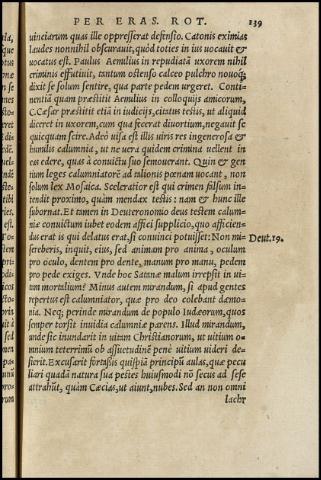 PER ERAS. ROT. 139
uinciarum quas ille oppresserat defensio. Catonis eximias
laudes nonnihil obscurauit, quòd toties in ius uocauit &
uocatus est. Paulus Aemilius in repudiatā uxorem nihil
criminis effutiuit, tantum ostenso calceo pulchro nouoq́;
dixit se solum sentire, qua parte pedem urgeret. Conti-
nentiā quam præstitit Aemilius in colloquijs amicorum,
C.Cæsar præstitit etiā in iudicijs, citatus testis, ut aliquid
diceret in uxorem, cum qua fecerat diuortium, negauit se
quicquam scire. Adeò uisa est illis uiris res ingenerosa &
humilis calumnia, ut ne uera quidem crimina uellent in
eas edere, quas à conuictu suo semouerant. Quin & gen
tium leges calumniatorem ad talionis pœnam uocant, non
solum lex Mosaica. Sceleratior est qui crimen falsum in-
tendit proximo, quàm mendax testis: nam & hunc ille
subornat. Et tamen in Deuteronomio deus testem calum-
niæ conuictum iubet eodem affici supplicio, quo afficien-
dus erat is qui delatus erat, si conuinci potuisset: Non mi-
Deut.19.
sereberis, inquit, eius, sed animam pro anima, oculum
pro oculo, dentem pro dente, manum pro manu, pedem
pro pede exiges. Vnde hoc Satanæ malum irrepsit in ui-
tam mortalium? Minus autem mirandum, si apud gentes
repertus est calumniator, quæ pro deo colebant dæmo-
nia. Neq; perinde mirandum de populo Iudæorum, quos
semper torsit inuidia calumniæ parens. Illud mirandum,
unde sic inundarit in uitam Christianorum, ut uitium o-
mnium teterrimū ob assuetudinē penè uitium uideri de-
sierit. Excusarit fortassis quispiā principū aulas, quæ pecu
liari quadā natura sua pestes huiusmodi nō secus ad sese
attrahūt, quàm Cæcias, ut aiunt, nubes. Sed an non omni
lachr